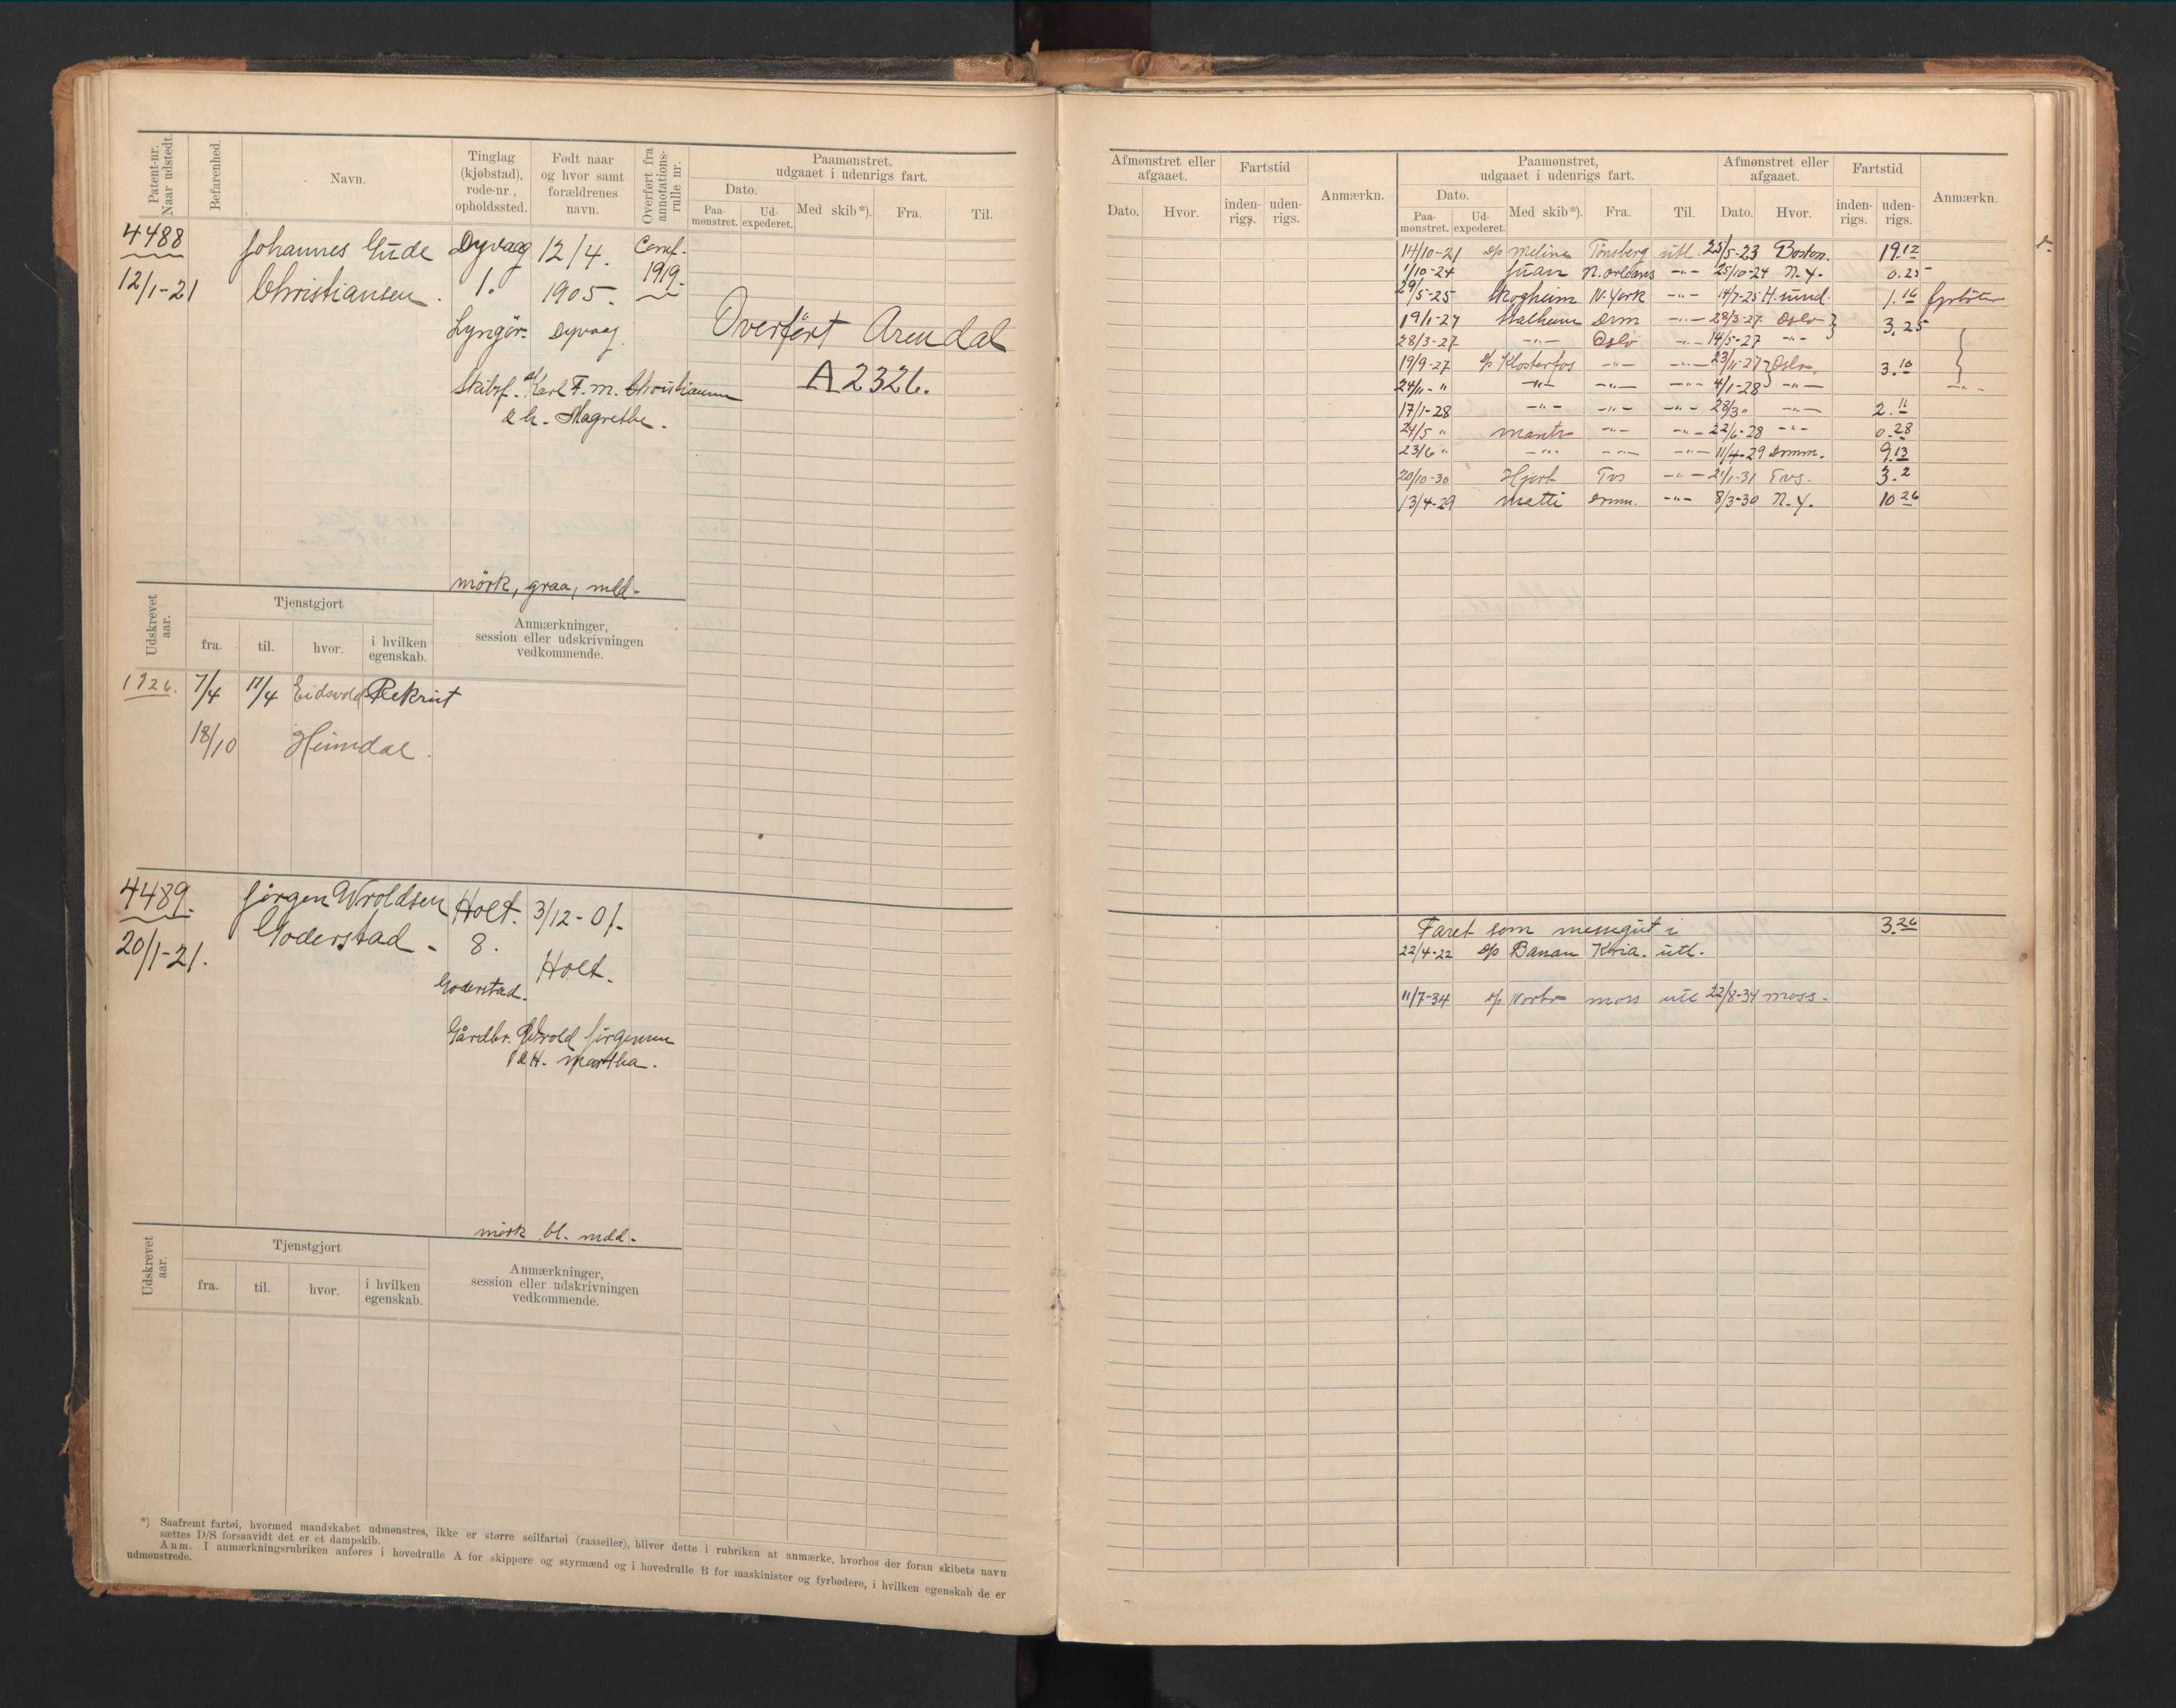 Patent-nr. Naar udstedt.
Befarenhed.
Navn.
Tinglag (kjøbstad), rode-nr., opholdssted.
Født naar og hvor samt forældrenes navn.
Overført fra annotations-rulle nr.
Paamønstret, udgaaet i udenrigs fart.
Dato.
Paa-mønstret.
Ud-expederet.
Med skib*).
Fra.
Til.
4488
12/1-21
Johannes Gude
Christiansen.
Dyvaag
1.
Lyngör.
12/4.
1905.
Dyvaag
1919.
Overfört Arendal
A 2326.
Karl F. M. Christiansen
& h. Magrethe.
mörk, graa, mdd.
Udskrevet aar.
Tjenstgjort
fra.
til.
hvor.
i hvilken egenskab.
Anmærkninger, session eller udskrivningen vedkommende.
1926. 7/4 17/4 Eidsvold Rekrut
18/10 Heimdal.
4489.
20/1-21.
Jørgen Wroldsen
Goderstad.
Holt.
8.
Goderstad.
3/12-01.
Holt.
Gårdbr. Wrold Jørgensen
& H. Martha.
mörk bl. mdd.
Udskrevet aar.
Tjenstgjort
fra.
til.
hvor.
i hvilken egenskab.
Anmærkninger, session eller udskrivningen vedkommende.
*) Saafremt fartøi, hvormed mandskabet udmønstres, ikke er større seilfartøi (raaseiler), bliver dette i rubriken at anmærke, hvorhos der foran skibets navn
sættes D/S forsaavidt det er et dampskib.
Anm. I anmærkningsrubriken anføres i hovedrulle A for skippere og styrmænd og i hovedrulle B for maskinister og fyrbødere, i hvilken egenskab de er
udmønstrede.
Afmønstret eller afgaaet.
Dato.
Hvor.
Fartstid
inden-rigs.
uden-rigs.
Anmærkn.
Paamønstret, udgaaet i udenrigs fart.
Dato.
Paa-mønstret.
Ud-expederet.
Med skib*).
Fra.
Til.
Afmønstret eller afgaaet.
Dato.
Hvor.
Fartstid
inden-rigs.
uden-rigs.
Anmærkn.
14/10-21 D/s Meline Tönsberg utl. 25/5-23 Boston. 19.12
1/10-24 Juan N. Orleans -"- 25/10-24 N.Y. 0.25
29/5-25 Skogheim N. York -"- 14/7-25 H.sund. 1.16
19/1-27 Stalheim Drm -"- 28/3-27 Oslo
28/3-27 -"- Oslo -"- 14/5-27 -"- 3.25
19/9-27 D/s Klosterfos -"- -"- 23/11-27 Oslo. 3.10
24/11 -"- -"- -"- -"- 4/1-28 -"-
17/1-28 -"- -"- -"- 28/3 " -"- 2.11
24/5 " -"- -"- 22/6-28 -"- 0.28
23/6 " -"- -"- -"- 11/4-29 Dramm. 9.13
20/10-30 Hjort Tvs -"- 21/1-31 Tvs. 3.2
13/4-29 Matti Dramm. -"- 8/3-30 N.Y. 10 26
Faret som messegut i 3.26
22/4-22 D/s Banan Kria. utl.
11/7-34 D/s Moss utl 22/8-34 Moss.